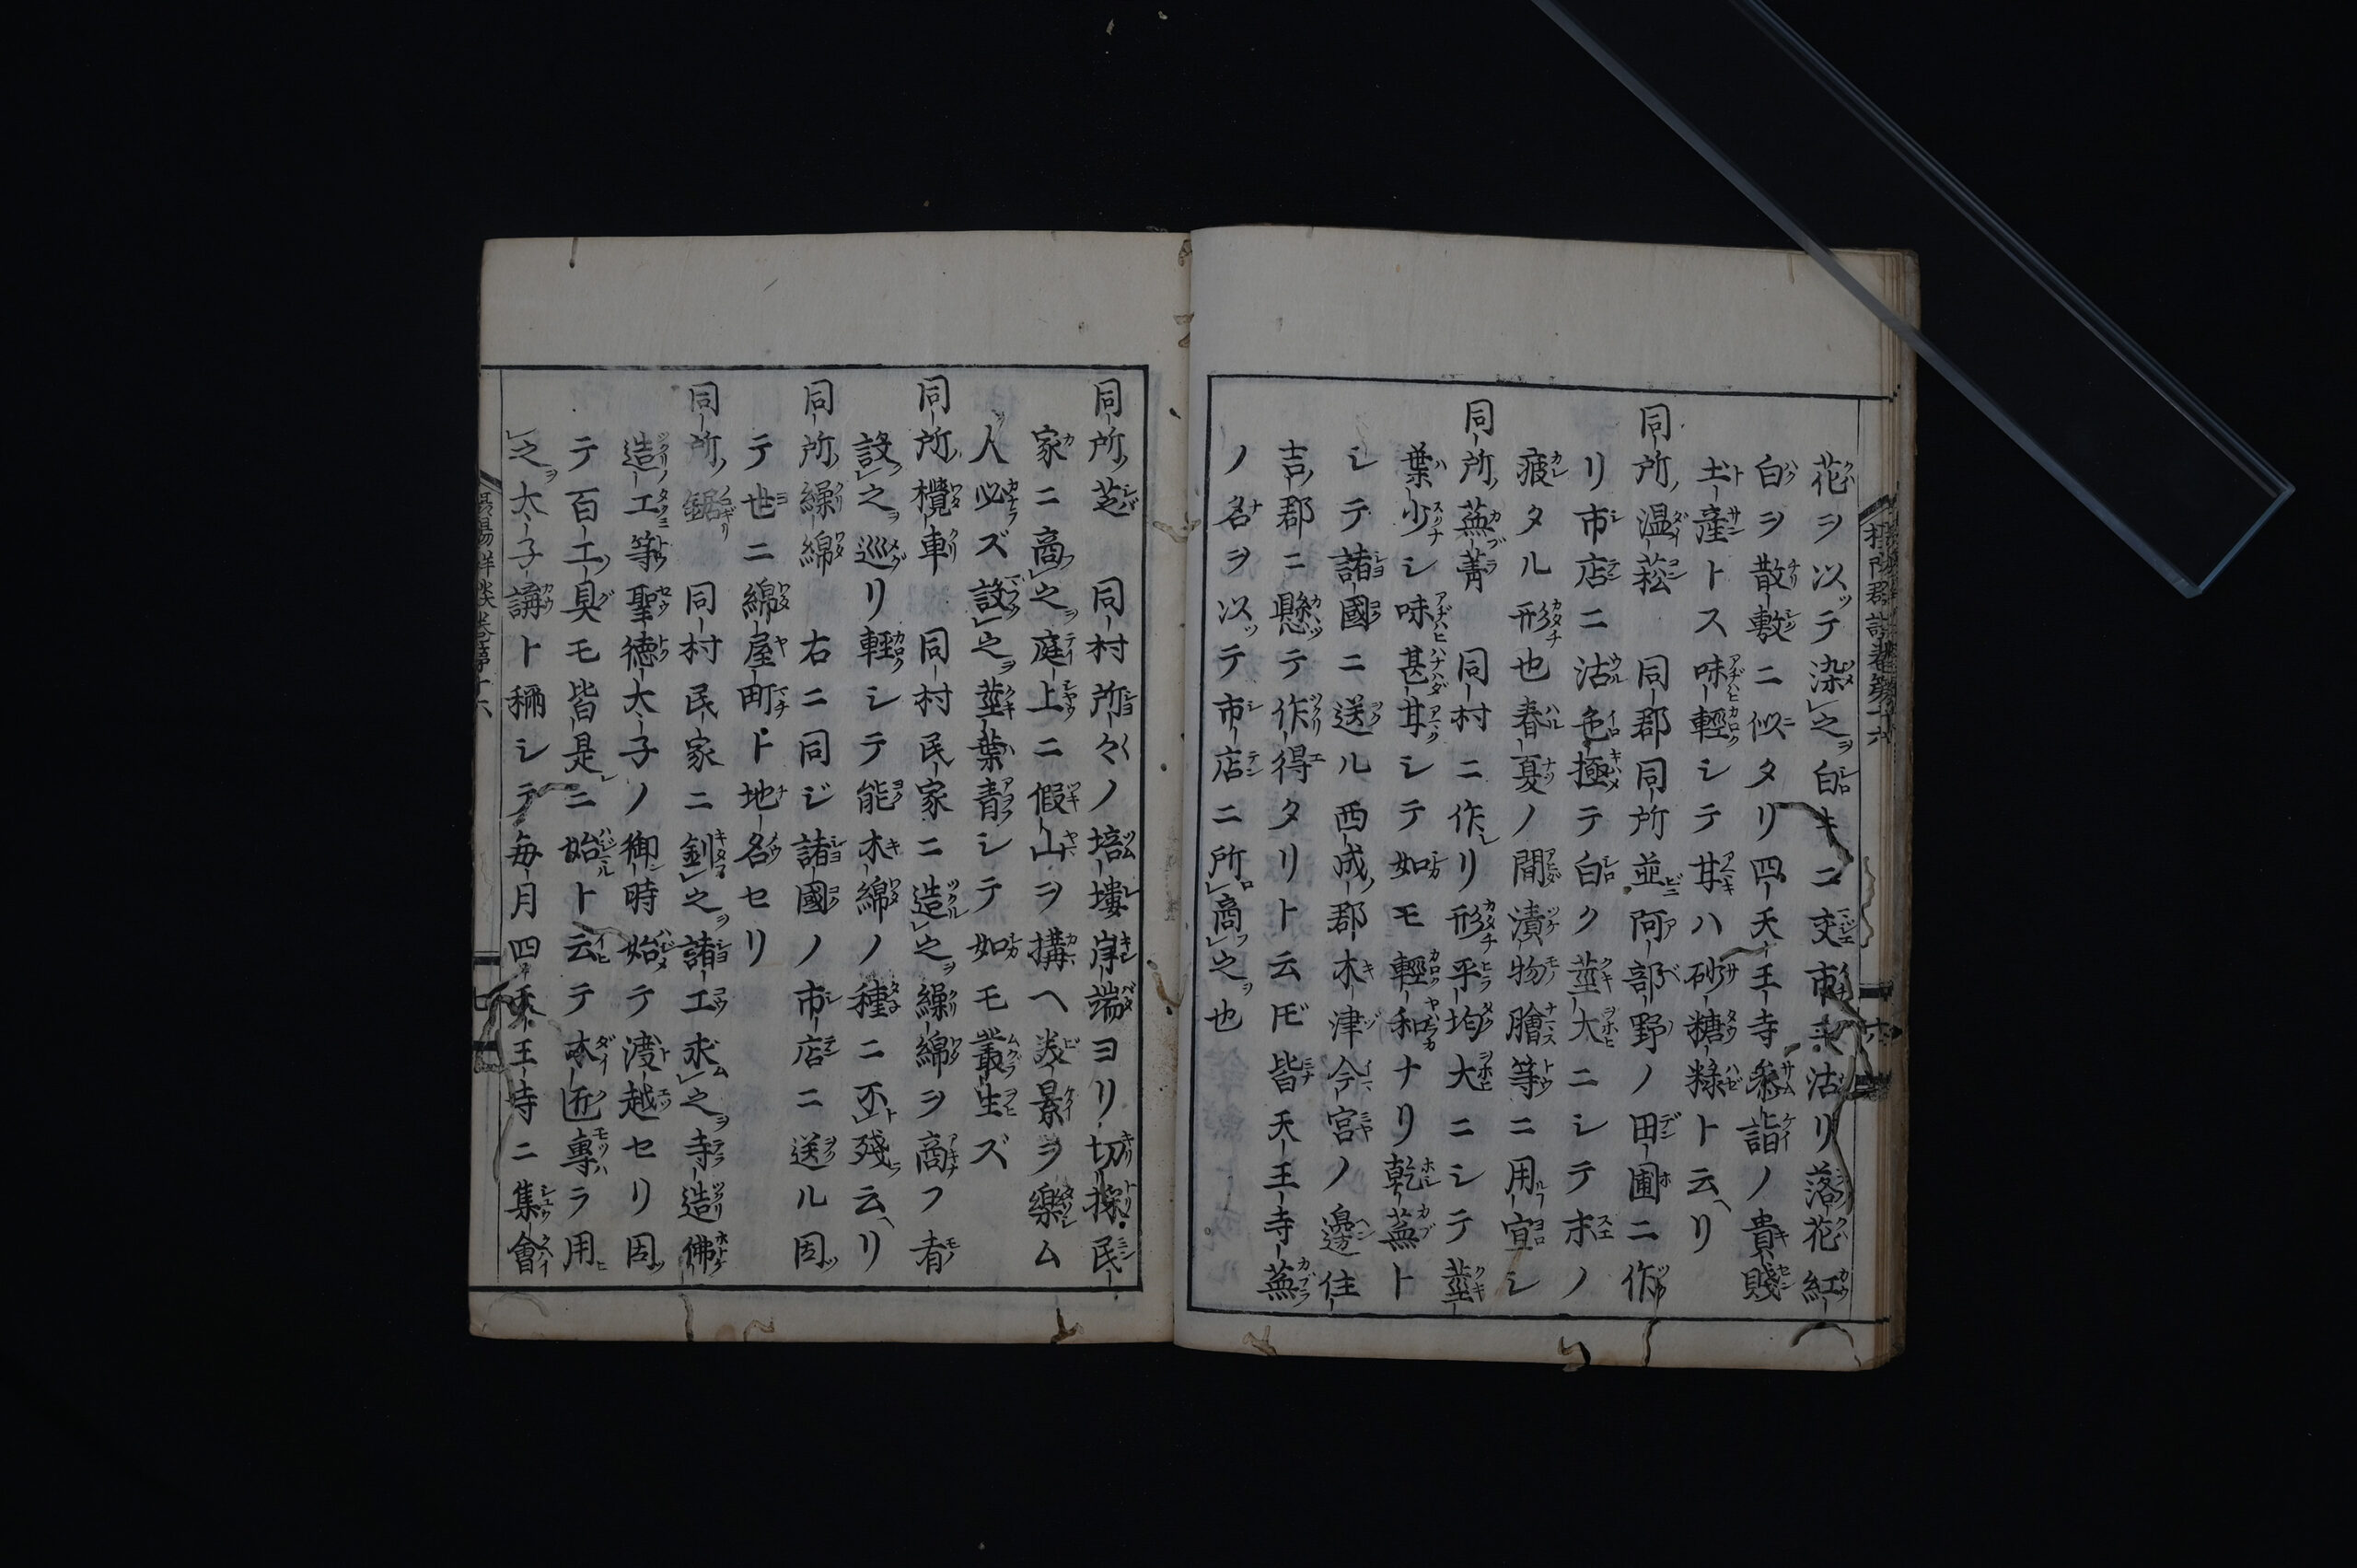 花ヲ以テ染之白キニ交市ニ沽リ落花紅
白ヲ散敷ニ似タリ四天王寺参詣ノ貴賤
土産トス味輕シテ甘キハ砂糖糅ト云リ
同所温菘 同郡同所並阿部野ノ田圃ニ作
リ市店ニ沽色極テ白ク莖大ニシテ末ノ
疲タル形也春夏ノ間漬物膾等ニ用宜シ
同所蕪菁 同村ニ作リ形平均大ニシテ莖
葉少シ味甚甘シテ如モ輕和ナリ乾蕪ト
シテ諸國ニ送ル西成郡木津今宮ノ邊住
吉郡ニ懸テ作得タリト云𪜈皆天王寺蕪
ノ名ヲ以テ市店ニ所商之也
同所芝 同村所々ノ培塿岸端ヨリ切採民
家ニ商之庭上ニ假山ヲ搆ヘ美景ヲ樂ム
人必ズ設之莖葉青シテ如モ叢生ズ
同所攪車 同村民家ニ造之繰綿ヲ商フ者
設之巡リ輕シテ能木綿ノ種ニ不殘云リ
同所繰綿 右ニ同ジ諸國ノ市店ニ送ル因
テ世ニ綿屋町ト地名セリ
同所鋸 同村民家ニ釗之諸工求之寺造佛
造工等聖徳太子ノ御時始テ渡越セリ因
テ百工具モ皆是ニ始ト云テ木匠專ラ用
之太子講ト稱シテ毎月四天王寺ニ集會